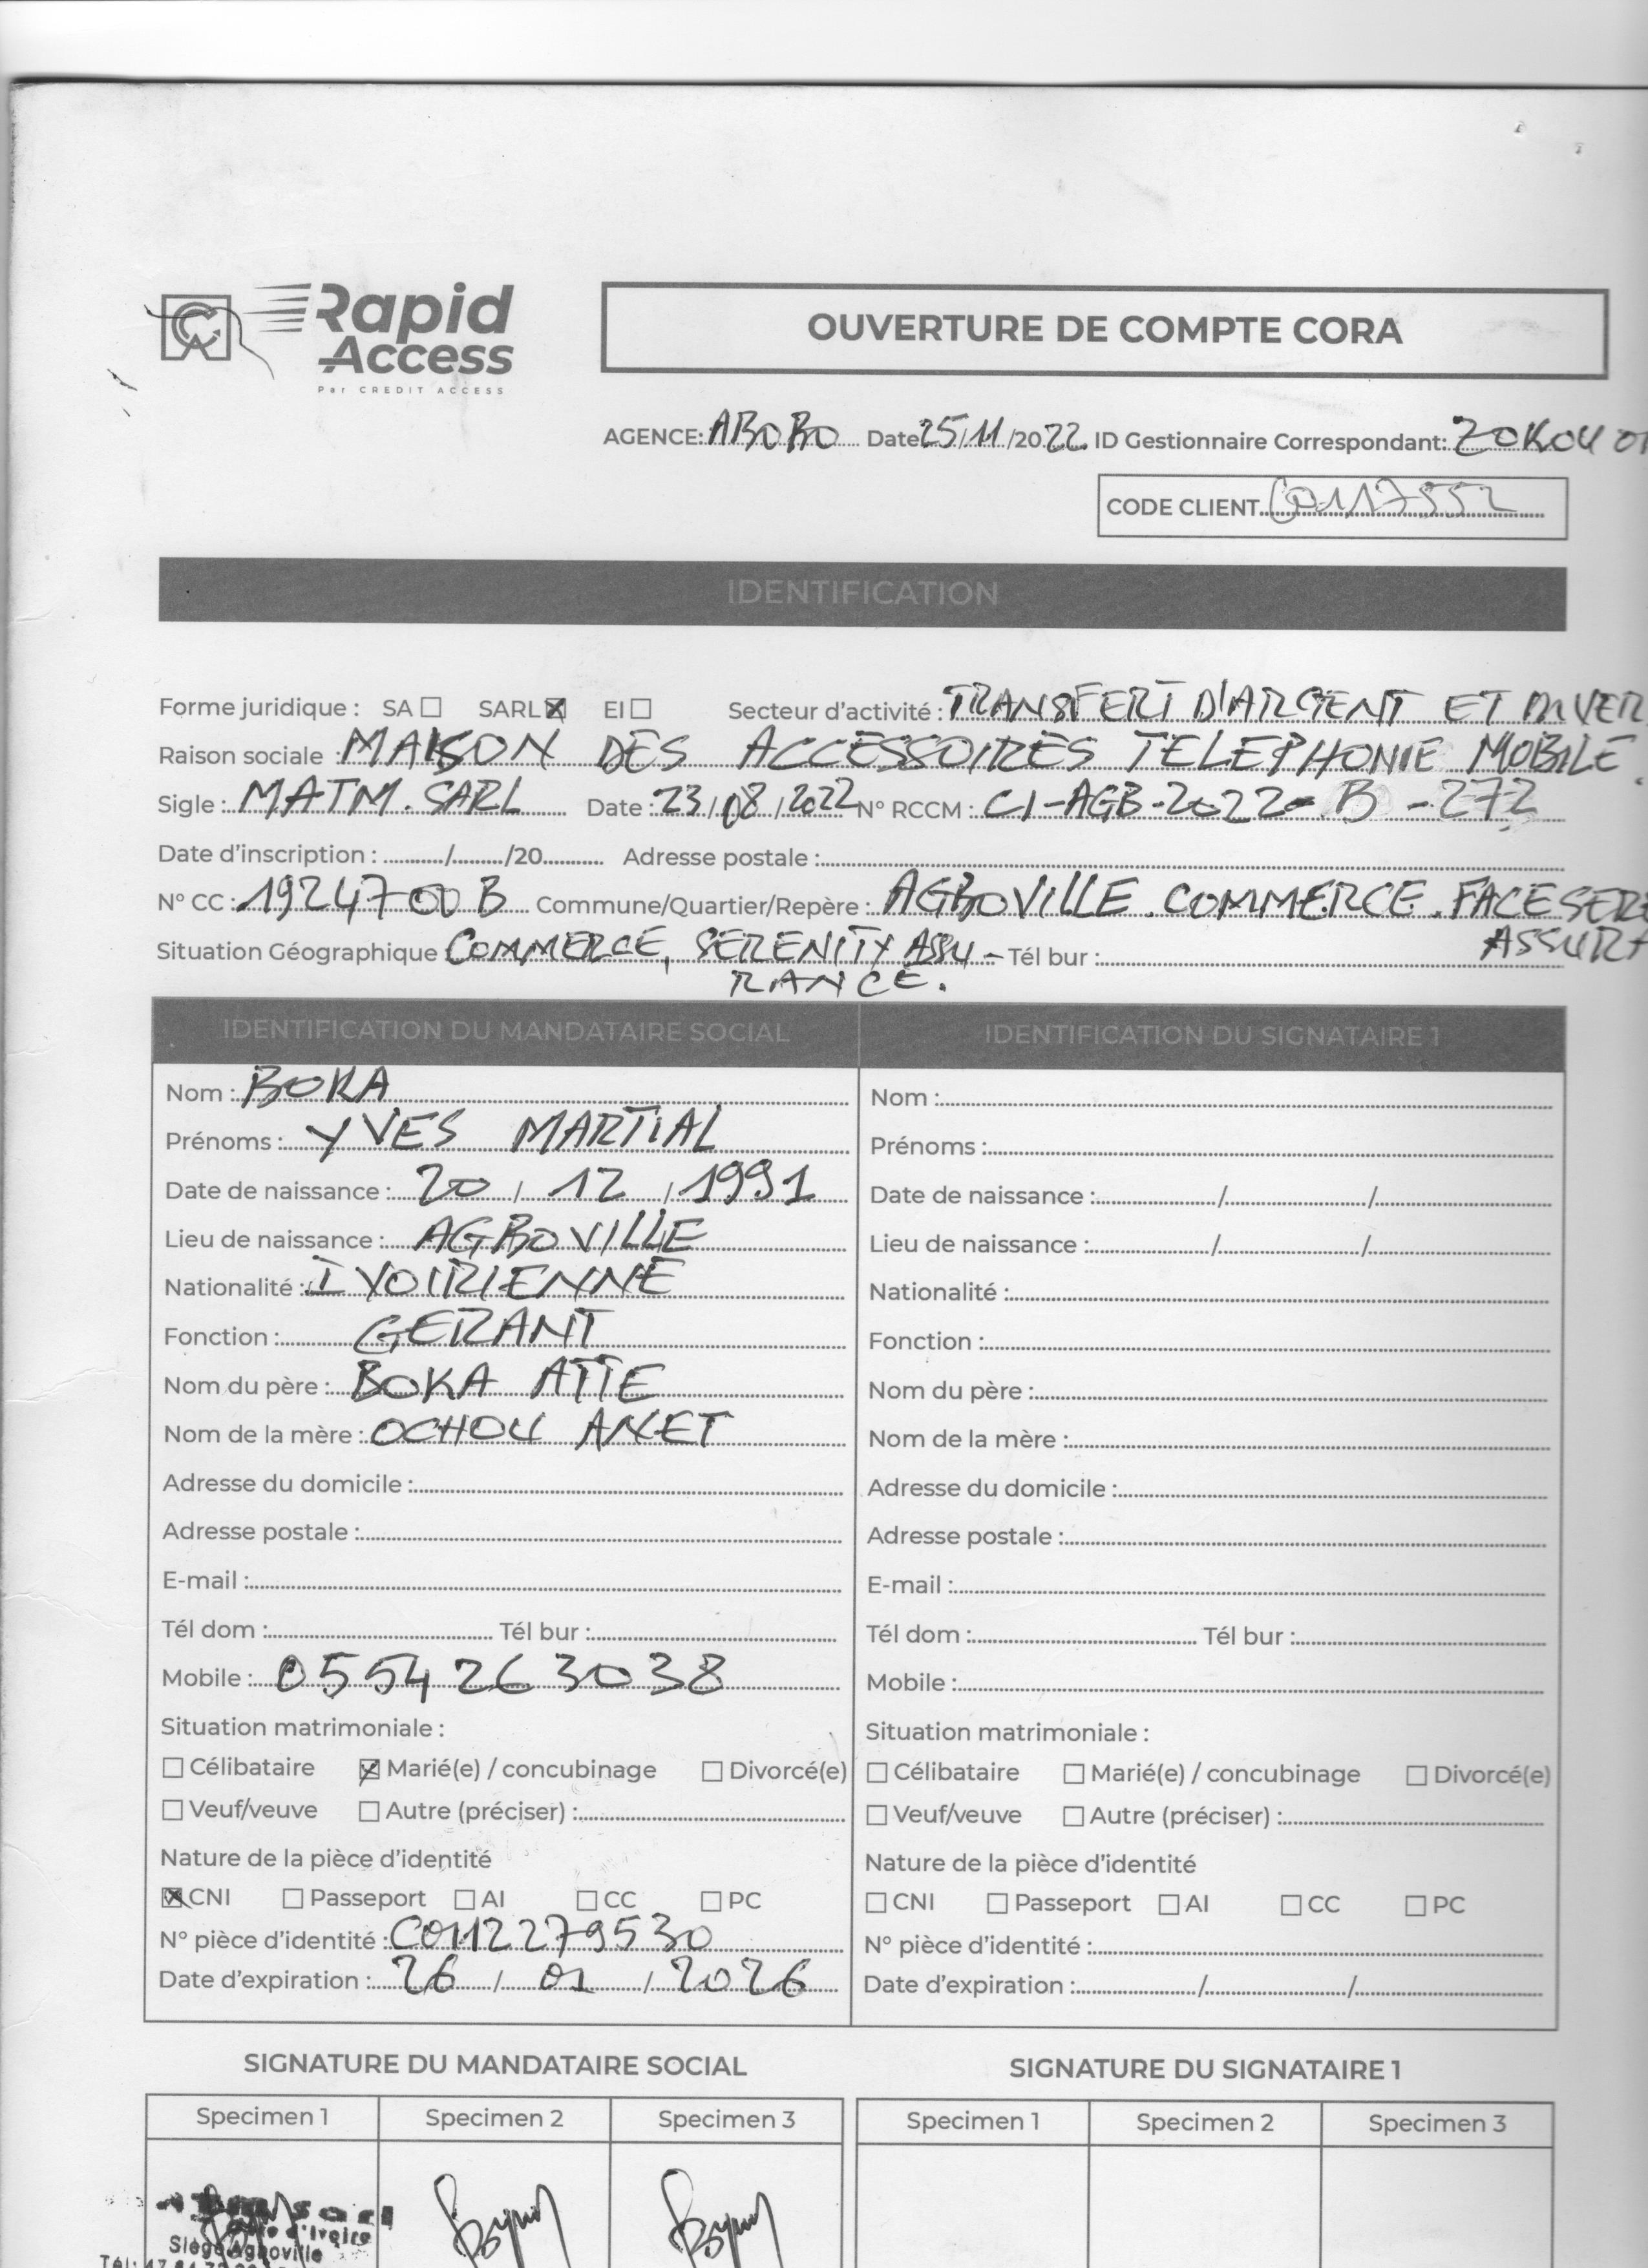 Rapid
Access
Par CREDIT ACCESS
OUVERTURE DE COMPTE CORA
AGENCE: ABOBO Date 25/11/2022 ID Gestionnaire Correspondant: ZOKOU
CODE CLIENT C0117552
IDENTIFICATION
Forme juridique : SA ☐ SARL ☒ EI ☐ Secteur d'activité : TRANSFERT D'ARGENT ET DIVER
Raison sociale : MAISON DES ACCESSOIRES TELEPHONIE MOBILE.
Sigle : MATM. SARL Date : 23/08/2022 N° RCCM : CI-AGB-2022-B-272
Date d'inscription : ........../........./20........... Adresse postale :
N° CC : 1924700 B Commune/Quartier/Repère : AGBOVILLE. COMMERCE. FACE SERE
ASSURA
Situation Géographique : COMMERCE, SERENITY ASSU- Tél bur :
RANCE.
IDENTIFICATION DU MANDATAIRE SOCIAL IDENTIFICATION DU SIGNATAIRE 1
Nom : BOKA
Prénoms : YVES MARTIAL
Date de naissance : 20 / 12 / 1991
Lieu de naissance : AGBOVILLE
Nationalité : IVOIRIENNE
Fonction : GERANT
Nom du père : BOKA ATTE
Nom de la mère : OCHOU ANET
Adresse du domicile :
Adresse postale :
E-mail :
Tél dom : Tél bur :
Mobile : 0554263038
Situation matrimoniale :
☐ Célibataire ☒ Marié(e) / concubinage ☐ Divorcé(e)
☐ Veuf/veuve ☐ Autre (préciser) :
Nature de la pièce d'identité
☒ CNI ☐ Passeport ☐ AI ☐ CC ☐ PC
N° pièce d'identité : C0112279530
Date d'expiration : 26 / 01 / 2026
Nom :
Prénoms :
Date de naissance : / /
Lieu de naissance : / /
Nationalité :
Fonction :
Nom du père :
Nom de la mère :
Adresse du domicile :
Adresse postale :
E-mail :
Tél dom : Tél bur :
Mobile :
Situation matrimoniale :
☐ Célibataire ☐ Marié(e) / concubinage ☐ Divorcé(e)
☐ Veuf/veuve ☐ Autre (préciser) :
Nature de la pièce d'identité
☐ CNI ☐ Passeport ☐ AI ☐ CC ☐ PC
N° pièce d'identité :
Date d'expiration : / /
SIGNATURE DU MANDATAIRE SOCIAL SIGNATURE DU SIGNATAIRE 1
Specimen 1 Specimen 2 Specimen 3 Specimen 1 Specimen 2 Specimen 3
sarl
d'Ivoire
Siège Agboville
Tél: